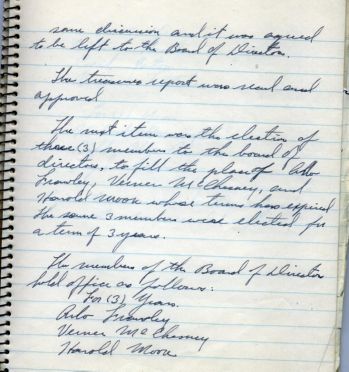 some discussion and it was agreed
to be left to the Board of Directors.
The treasures report was read and
approved
The next item was the election of
three (3) members to the board of
directors, to fill the place of Arlo
Frawley, Verner McChesney, and
Harold Moon whose terms has expired
The same 3 members were elected for
a term of 3 years.
The members of the Board of Directors
hold office as follows:
For (3) Years.
Arlo Frawley
Verner McChesney
Harold Moon